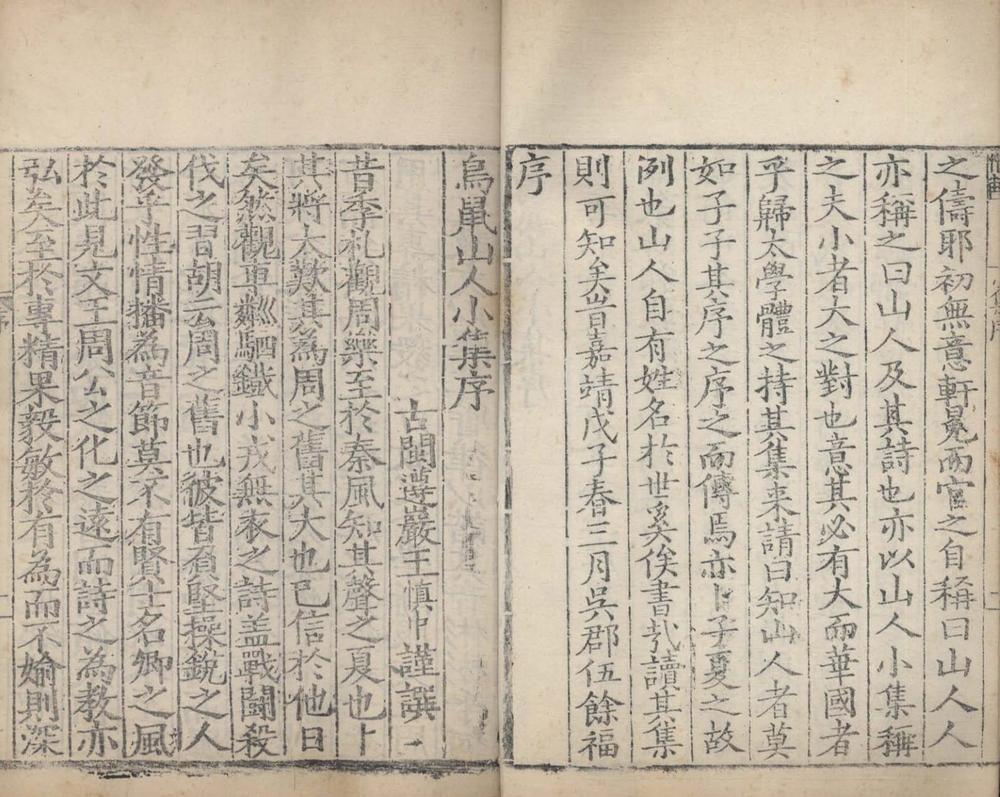 之儔耶初無意軒冕而官之自稱曰山人人
亦稱之曰山人及其詩也亦以山人小集稱
之夫小者大之對也意其必有大而華國者
乎歸太學體之持其集来請曰知山人者莫
如子子其序之序之而傳焉亦卜子夏之故
例也山人自有姓名於世奚俟書㢤讀其集
則可知矣旹嘉靖戊子春三月吳郡伍餘福
序
鳥鼠山人小集序
古閩遵巖王慎中謹譔
昔季札觀周樂至於秦風知其聲之夏也卜
其將大歎其為周之舊其大也已信於他日
矣然觀車鄰駟鐵小戎無衣之詩盖戰鬪殺
伐之習胡云周之舊也彼皆有堅操銳之人
發乎性情播為音節莫不有賢士名卿之風
於此見文王周公之化之遠而詩之為教亦
弘矣至於專精果毅敏於有為而不媮則深